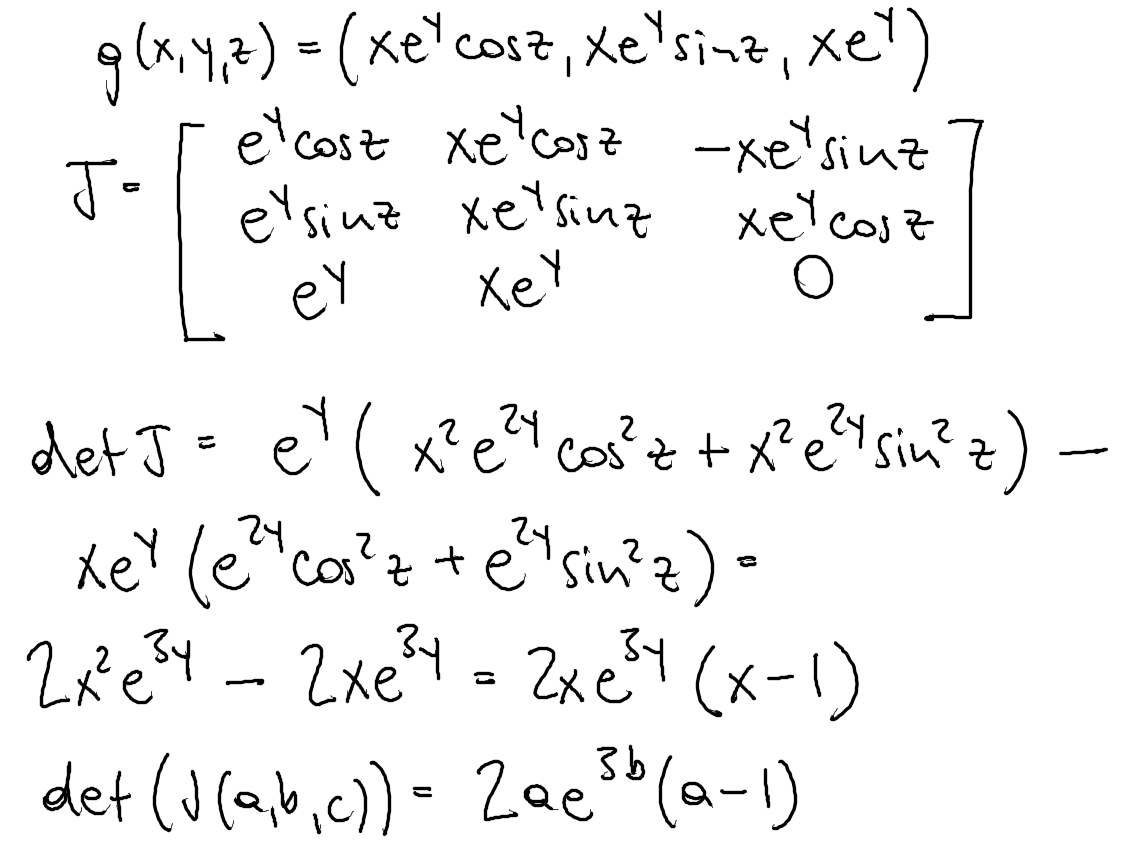 g(x,y,z) = (xe^y cosz, xe^y sinz, xe^y)
J = [ e^y cosz  xe^y cosz  -xe^y sinz
e^y sinz  xe^y sinz  xe^y cosz
e^y  xe^y  0 ]
det J = e^y ( x² e^{2y} cos² z + x² e^{2y} sin² z ) −
xe^y ( e^{2y} cos² z + e^{2y} sin² z ) =
2x² e^{3y} − 2xe^{3y} = 2xe^{3y} (x−1)
det (J(a,b,c)) = 2ae^{3b} (a−1)